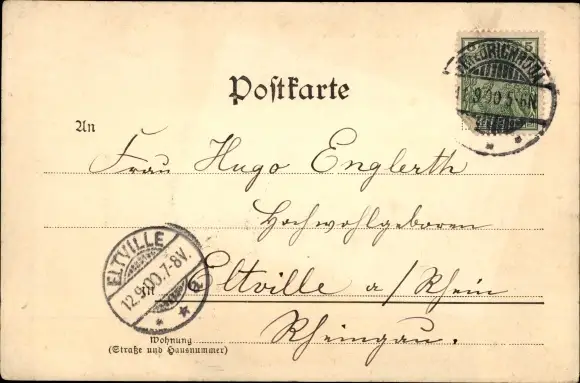 5 5
Postkarte
9.00.5-6N
An
Frau Hugo Englerth
Hochwohlgeboren
ELTVILLE
12.9.00.7-8V.
In Eltville a/Rhein
Wohnung
(Straße und Hausnummer)
Rheingau.